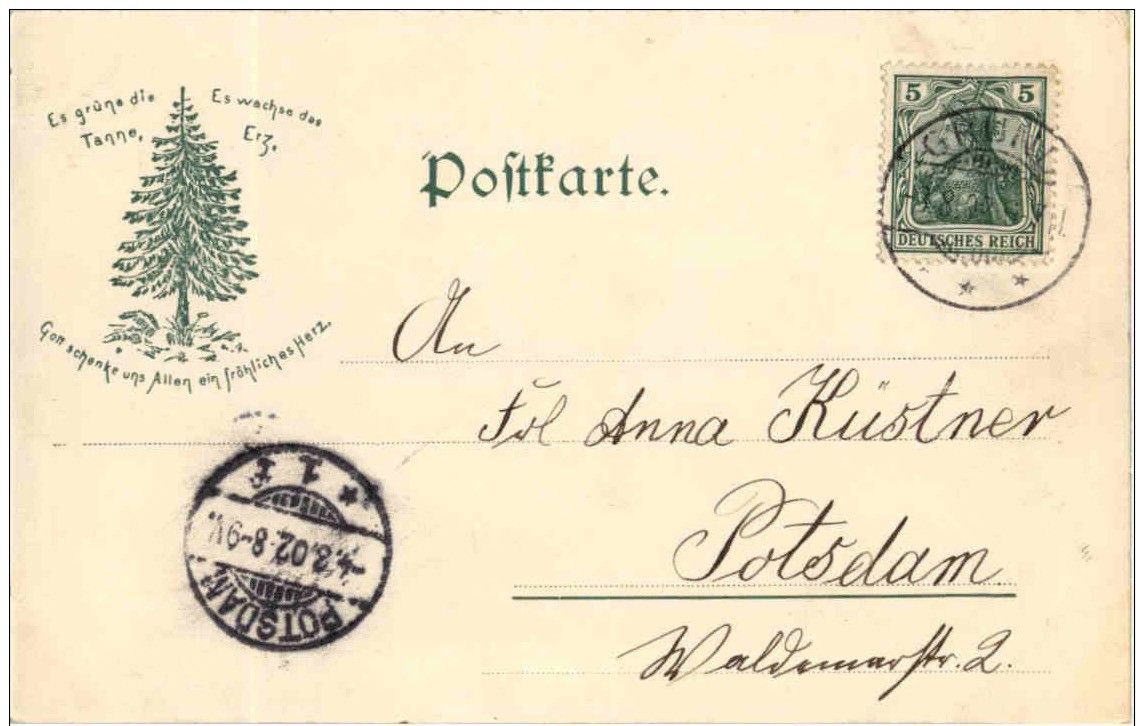 Es grüne die
Tanne,
Es wachse das
Erz,
Gott schenke uns Allen ein fröhliches Herz.
Postkarte.
5 5
DEUTSCHES REICH
An
Frl Anna Küstner
Potsdam
Waldemarstr. 2.
POTSDAM
-4.8.02.8-9V.
* 1 f *